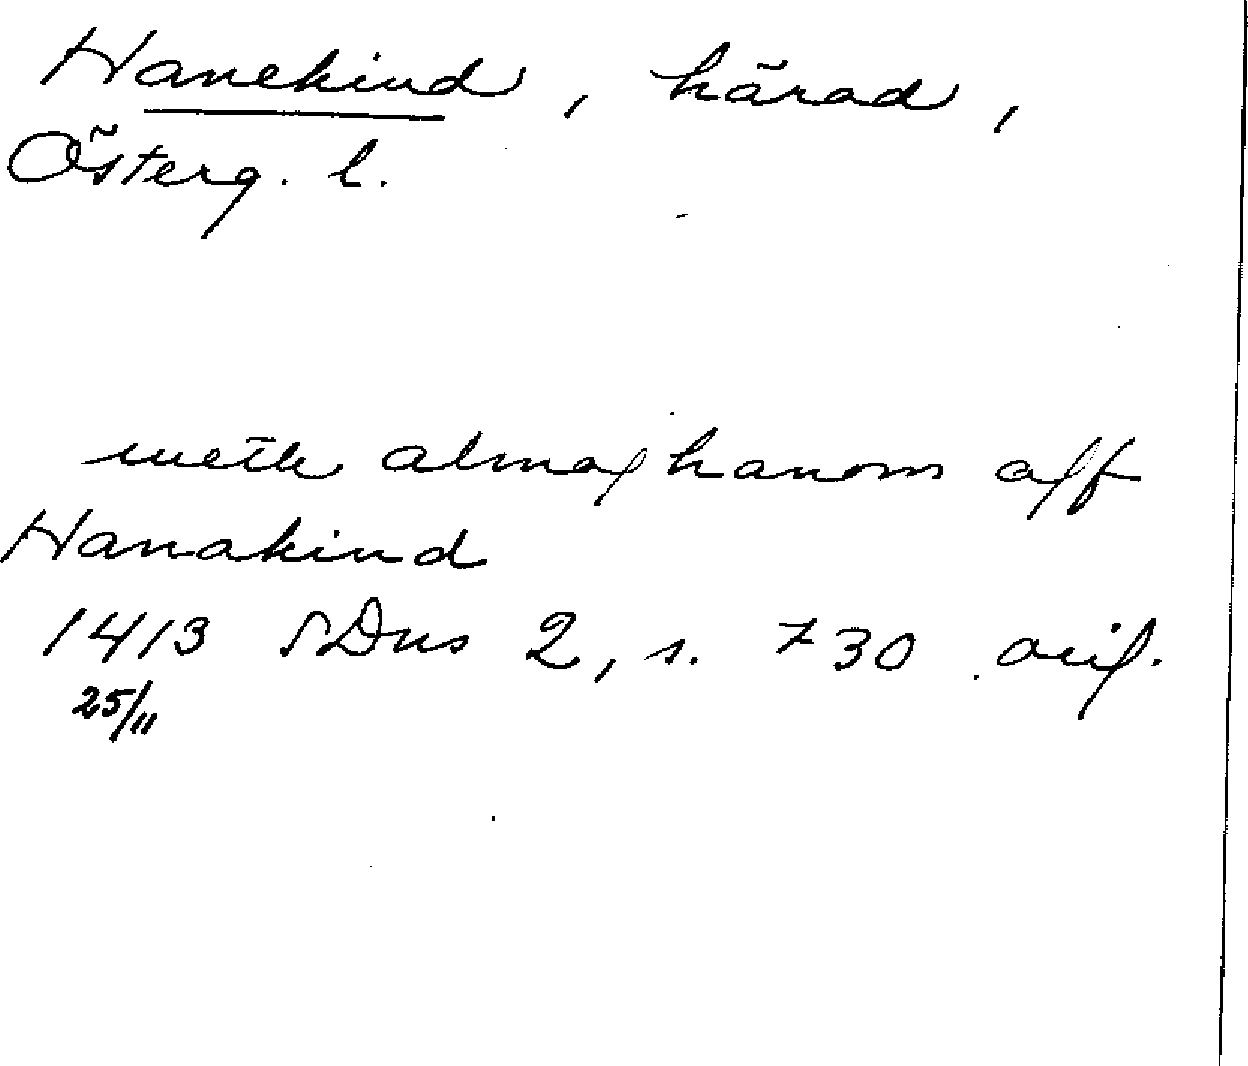 Hanekind, härad,
Österg. l.
meth almoghanom aff
Hanakind
1413 SDns 2, s. 730 orig.
25/11